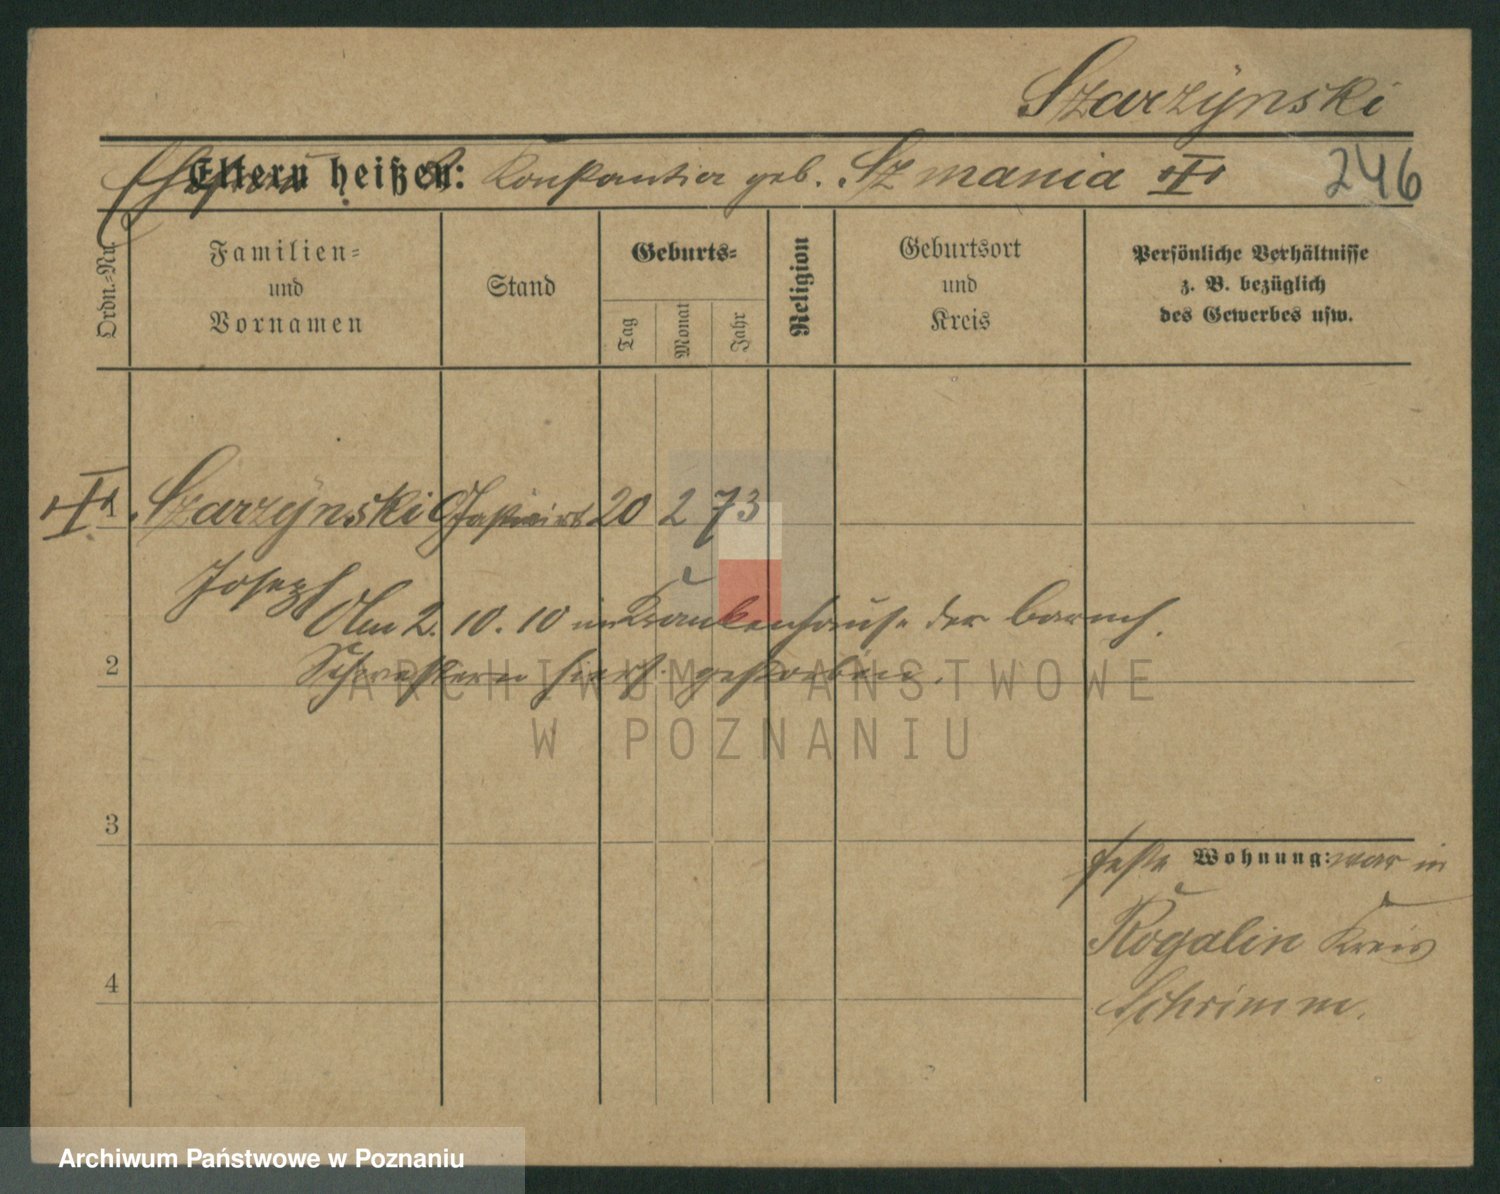 Szarzynski
Eltern heißen: Konstantia geb. Szmania
246
Ordn.-Nr.
Familien-
und
Vornamen
Stand
Geburts-
Tag
Monat
Jahr
Religion
Geburtsort
und
Kreis
Persönliche Verhältnisse
z. B. bezüglich
des Gewerbes usw.
1 Szarzynski Gastwirt 20 2 73
Joseph
Am 2. 10. 10 im Krankenhause der barmh.
2 Schwestern hiers. gestorben.
ARCHIWUM PAŃSTWOWE
W POZNANIU
3
feste Wohnung: war in
Rogalin Kreis
4
Schrimm.
Archiwum Państwowe w Poznaniu